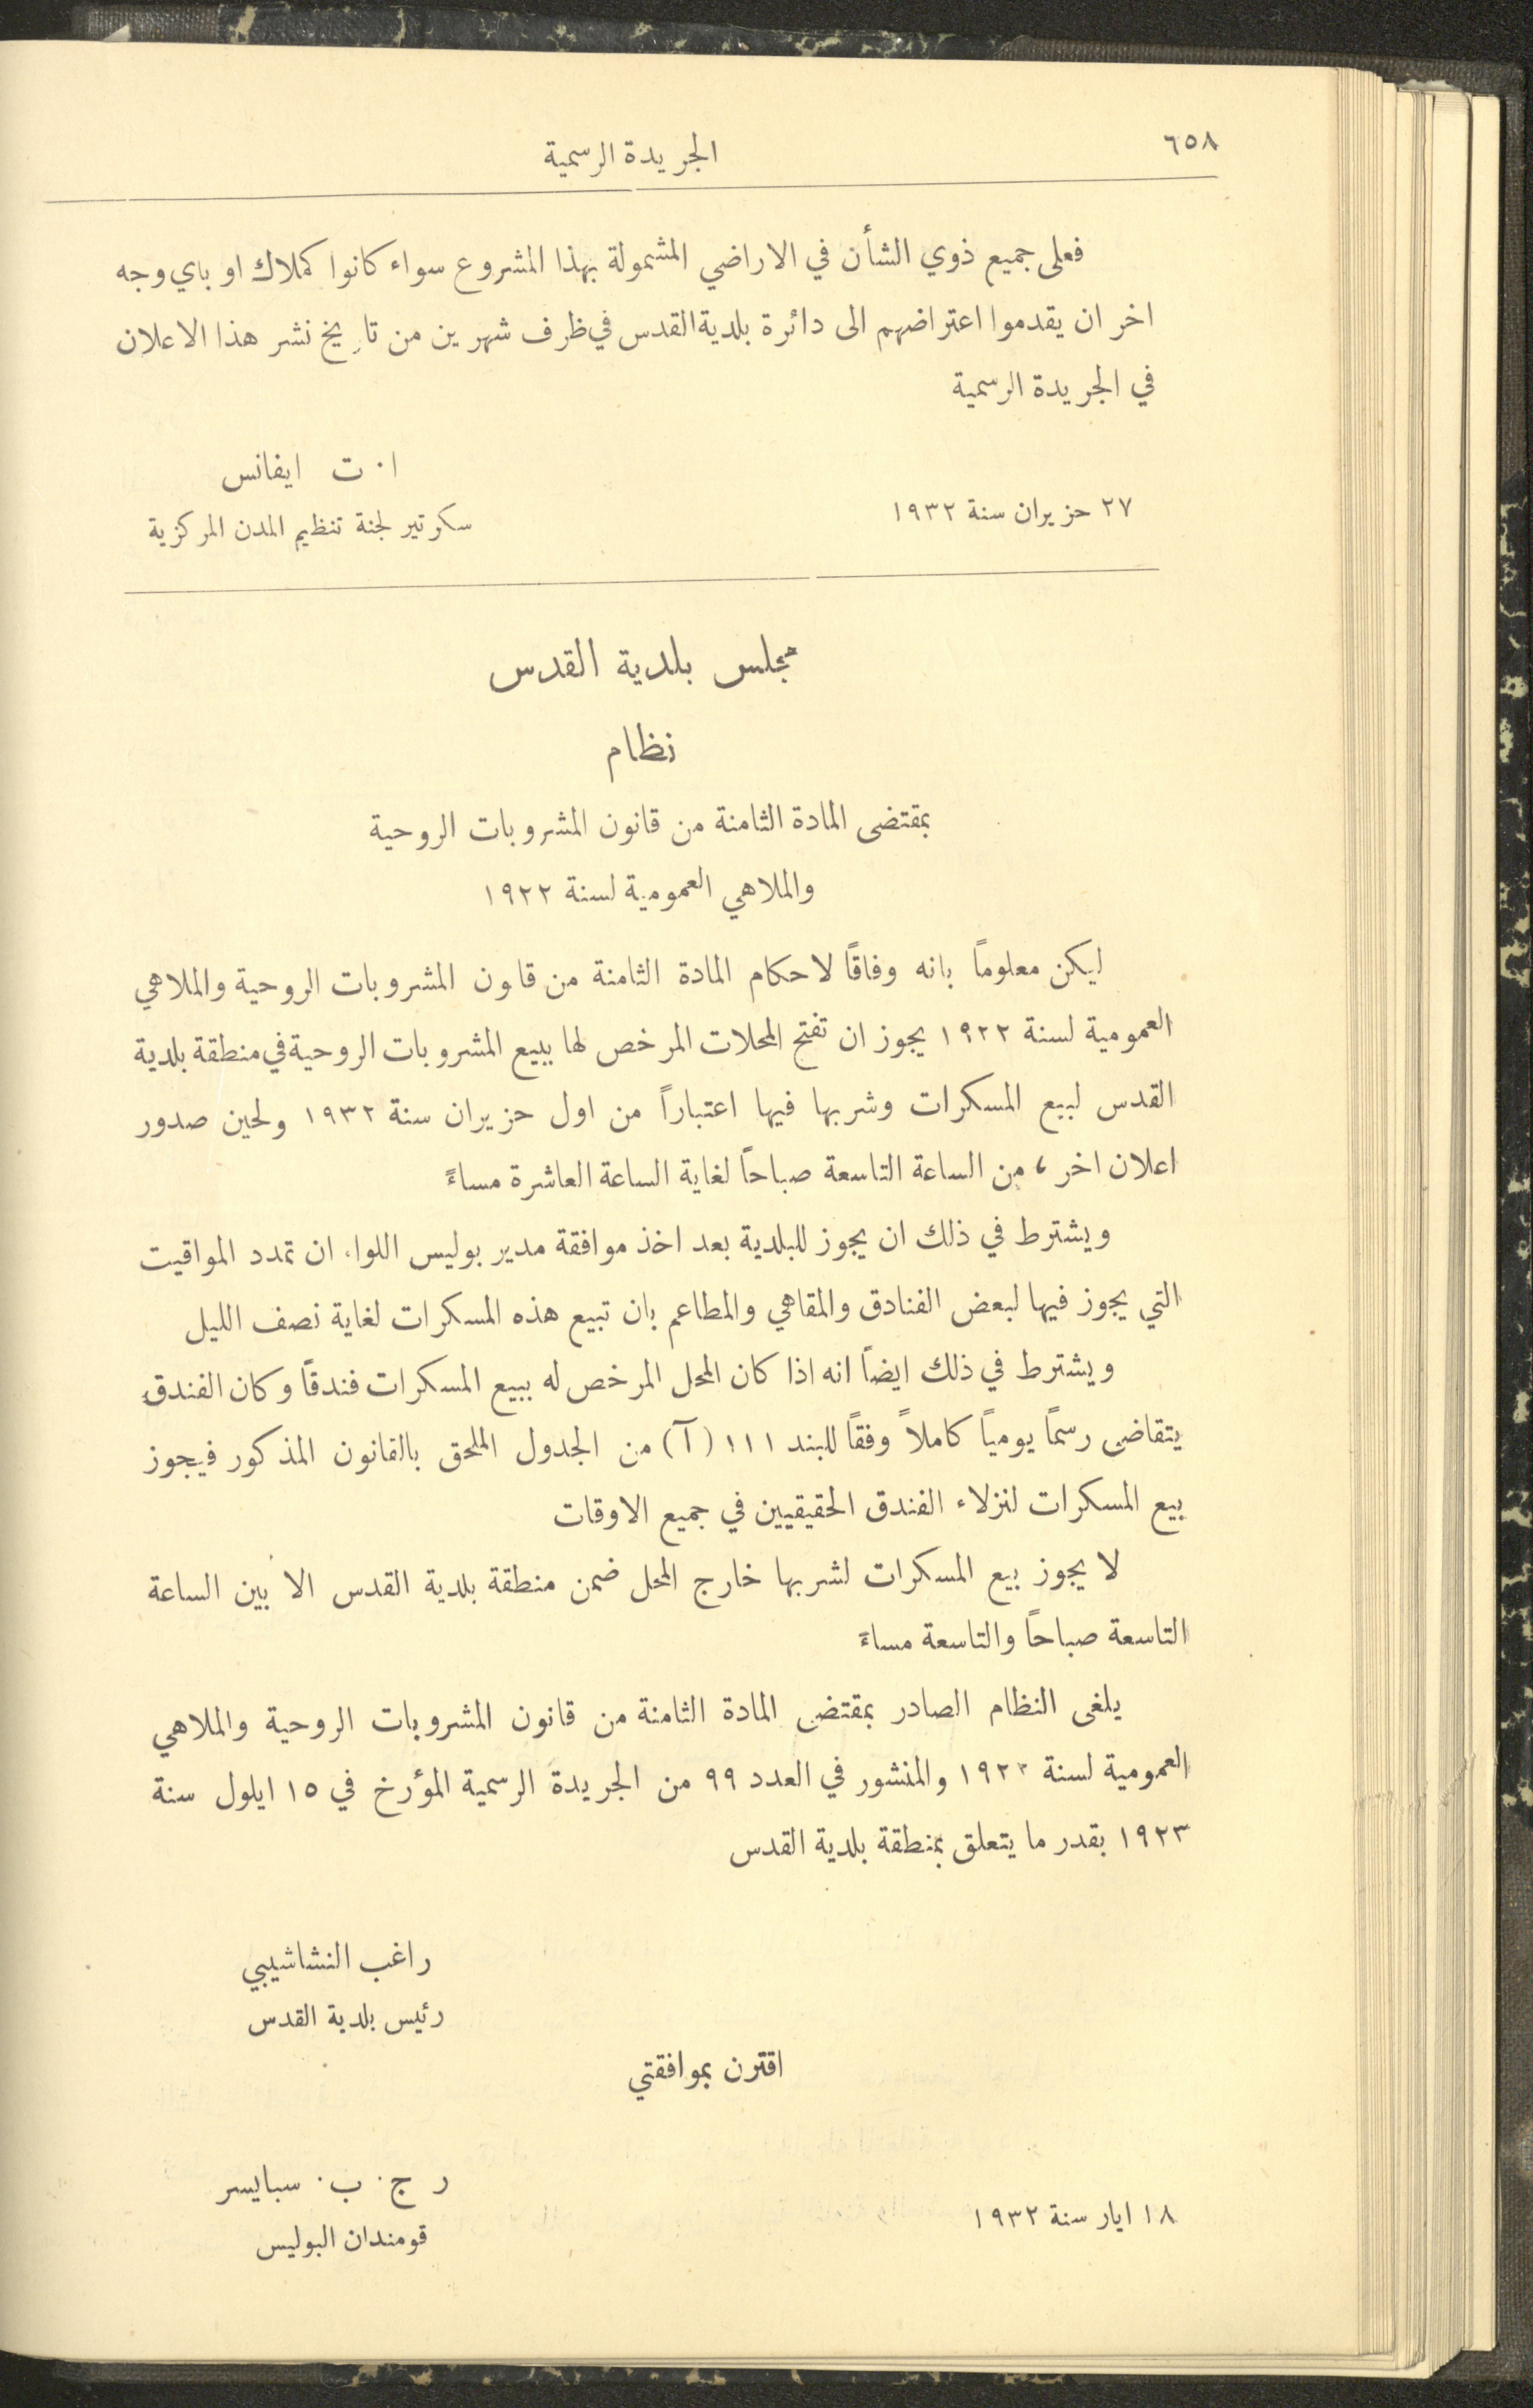 ٦٥٨
الجريدة الرسمية
فعلى جميع ذوي الشأن في الاراضي المشمولة بهذا المشروع سواء كانوا كملاك او باي وجه
اخر ان يقدموا اعتراضهم الى دائرة بلدية القدس في ظرف شهرين من تاريخ نشر هذا الاعلان
في الجريدة الرسمية
ا. ت ايفانس
٢٧ حزيران سنة ١٩٣٢
سكرتير لجنة تنظيم المدن المركزية
مجلس بلدية القدس
نظام
بمقتضى المادة الثامنة من قانون المشروبات الروحية
والملاهي العمومية لسنة ١٩٢٢
ليكن معلوماً بانه وفاقاً لاحكام المادة الثامنة من قاون المشروبات الروحية والملاهي
العمومية لسنة ١٩٢٢ يجوز ان تفتح المحلات المرخص لها ببيع المشروبات الروحية في منطقة بلدية
القدس لبيع المسكرات وشربها فيها اعتباراً من اول حزيران سنة ١٩٣٢ ولحين صدور
اعلان اخر ، من الساعة التاسعة صباحاً لغاية الساعة العاشرة مساءً
ويشترط في ذلك ان يجوز للبلدية بعد اخذ موافقة مدير بوليس اللواء ان تمدد المواقيت
التي يجوز فيها لبعض الفنادق والمقاهي والمطاعم بان تبيع هذه المسكرات لغاية نصف الليل
ويشترط في ذلك ايضاً انه اذا كان المحل المرخص له ببيع المسكرات فندقاً وكان الفندق
يتقاضى رسماً يومياً كاملاً وفقاً للبند ١١١ (آ) من الجدول الملحق بالقانون المذكور فيجوز
بيع المسكرات لنزلاء الفندق الحقيقيين في جميع الاوقات
لا يجوز بيع المسكرات لشربها خارج المحل ضمن منطقة بلدية القدس الا بين الساعة
التاسعة صباحاً والتاسعة مساءً
يلغى النظام الصادر بمقتضى المادة الثامنة من قانون المشروبات الروحية والملاهي
العمومية لسنة ١٩٢٢ والمنشور في العدد ٩٩ من الجريدة الرسمية المؤرخ في ١٥ ايلول سنة
١٩٢٣ بقدر ما يتعلق بمنطقة بلدية القدس
راغب النشاشيبي
رئيس بلدية القدس
اقترن بموافقتي
ر ج. ب. سبايسر
١٨ ايار سنة ١٩٣٢
قومندان البوليس